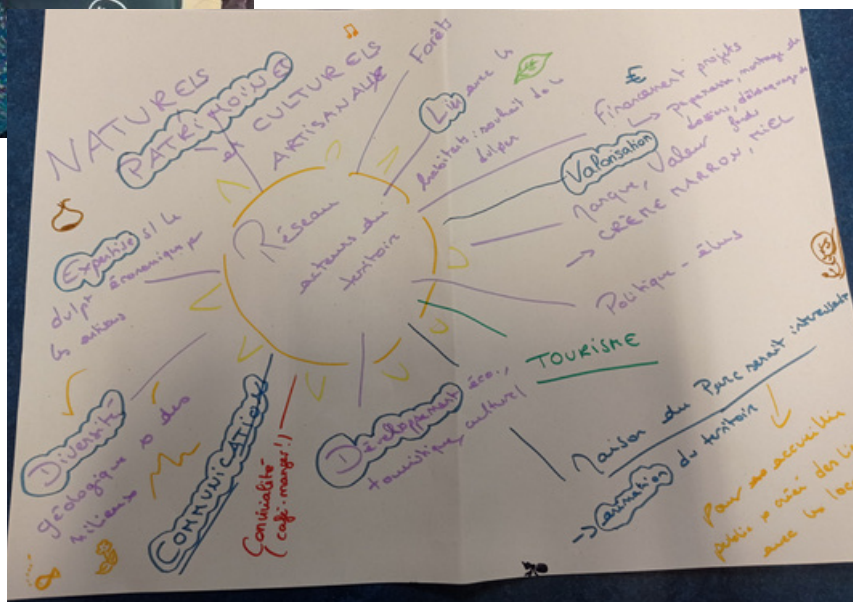 NATURELS
PATRIMOINE
et CULTURELS
ARTISANAUX
Forêts
Lien avec les
habitants : souhait de
dvlper
€
Financement projets
↳ paperasse, montage de
dossier, déblocage de
fonds
Valorisation
Marque, Valeur
→ CRÈME MARRON, MIEL
Politique - élus
TOURISME
Maison du Parc serait intéressant
→ animation du territoire
Pour accueillir
public & créer des
avec les
Développement éco.,
touristique, culturel
Convivialité
(café-manger!!)
COMMUNICATION
Diversité
géologique & des
milieux
Expertise s/ le
dvlpt économique
les
Réseau
acteurs du
territoire